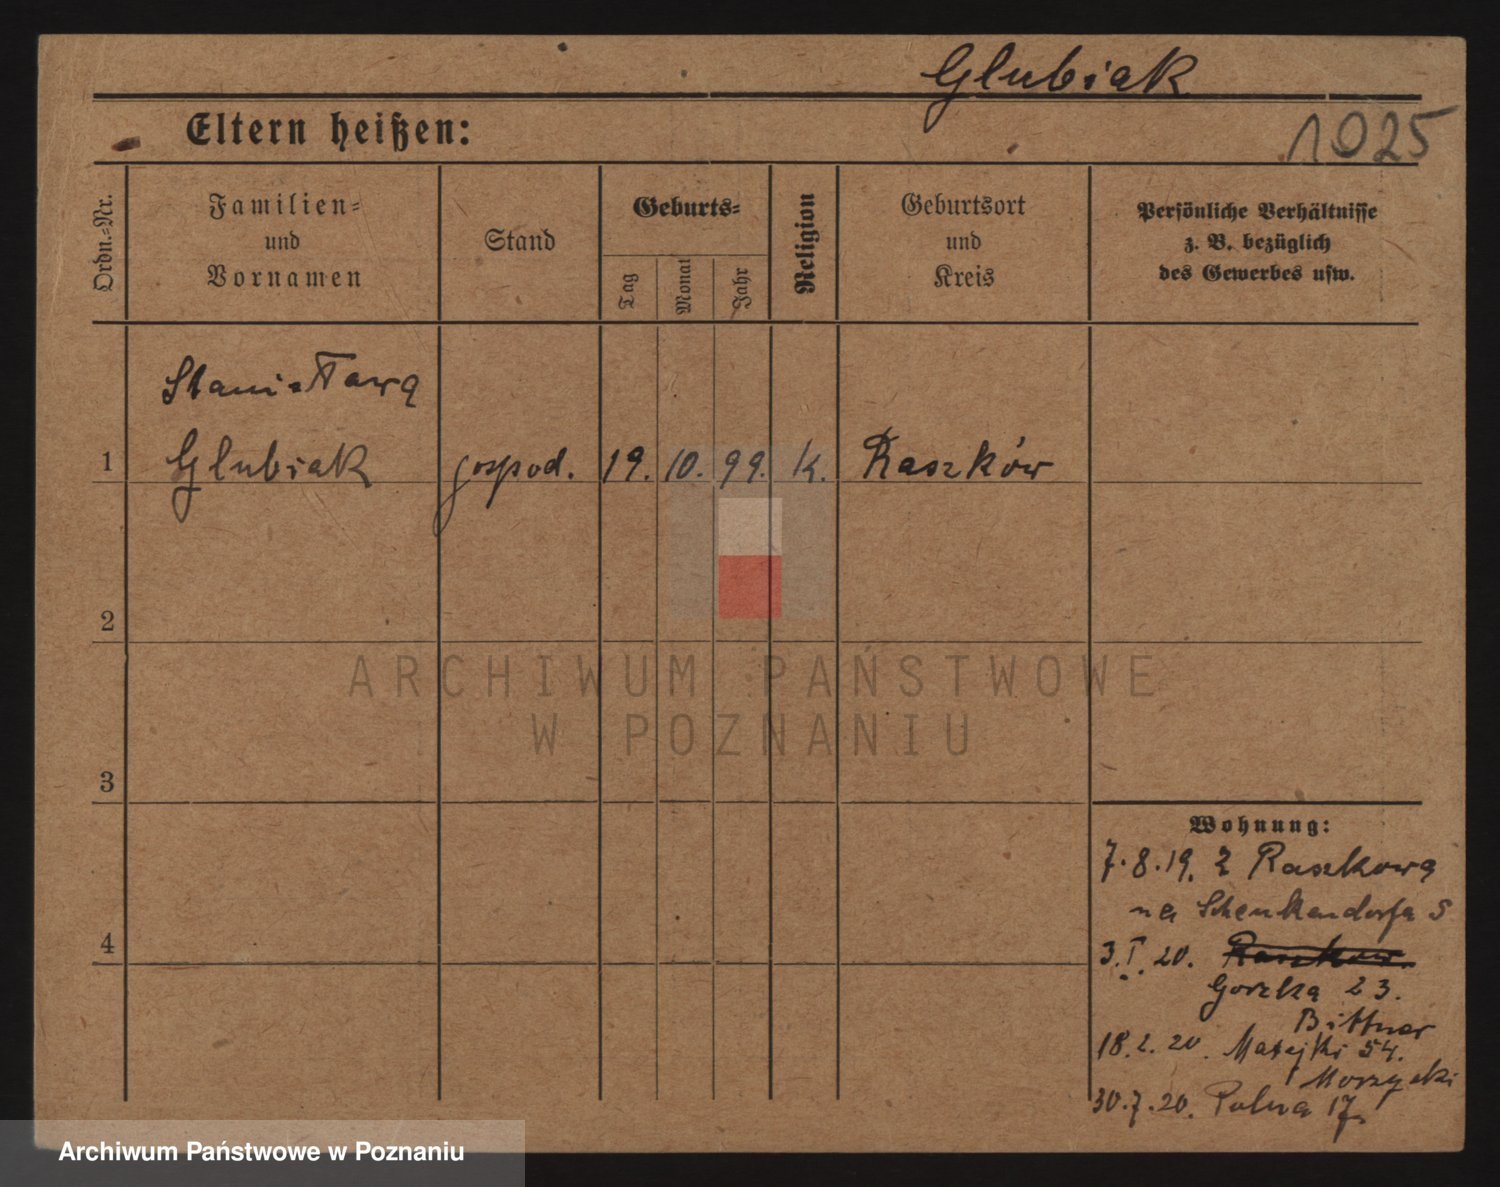 Glubiak
Eltern heißen:
1025
Ordn.=Nr.
Familien=
und
Vornamen
Stand
Geburts=
Tag
Monat
Jahr
Religion
Geburtsort
und
Kreis
Persönliche Verhältnisse
z. B. bezüglich
des Gewerbes usw.
Stanisława
1 Glubiak gospod. 19. 10. 99. k. Raszków
2
3
4
ARCHIWUM PAŃSTWOWE
W POZNANIU
Wohnung:
7.8.19. z Raszkowa
na Schenkendorfa 5
3.I.20. Raszków.
Gorzka 23.
Bittner
18.2.20. Matejki 54.
30.7.20. Polna 17
Archiwum Państwowe w Poznaniu